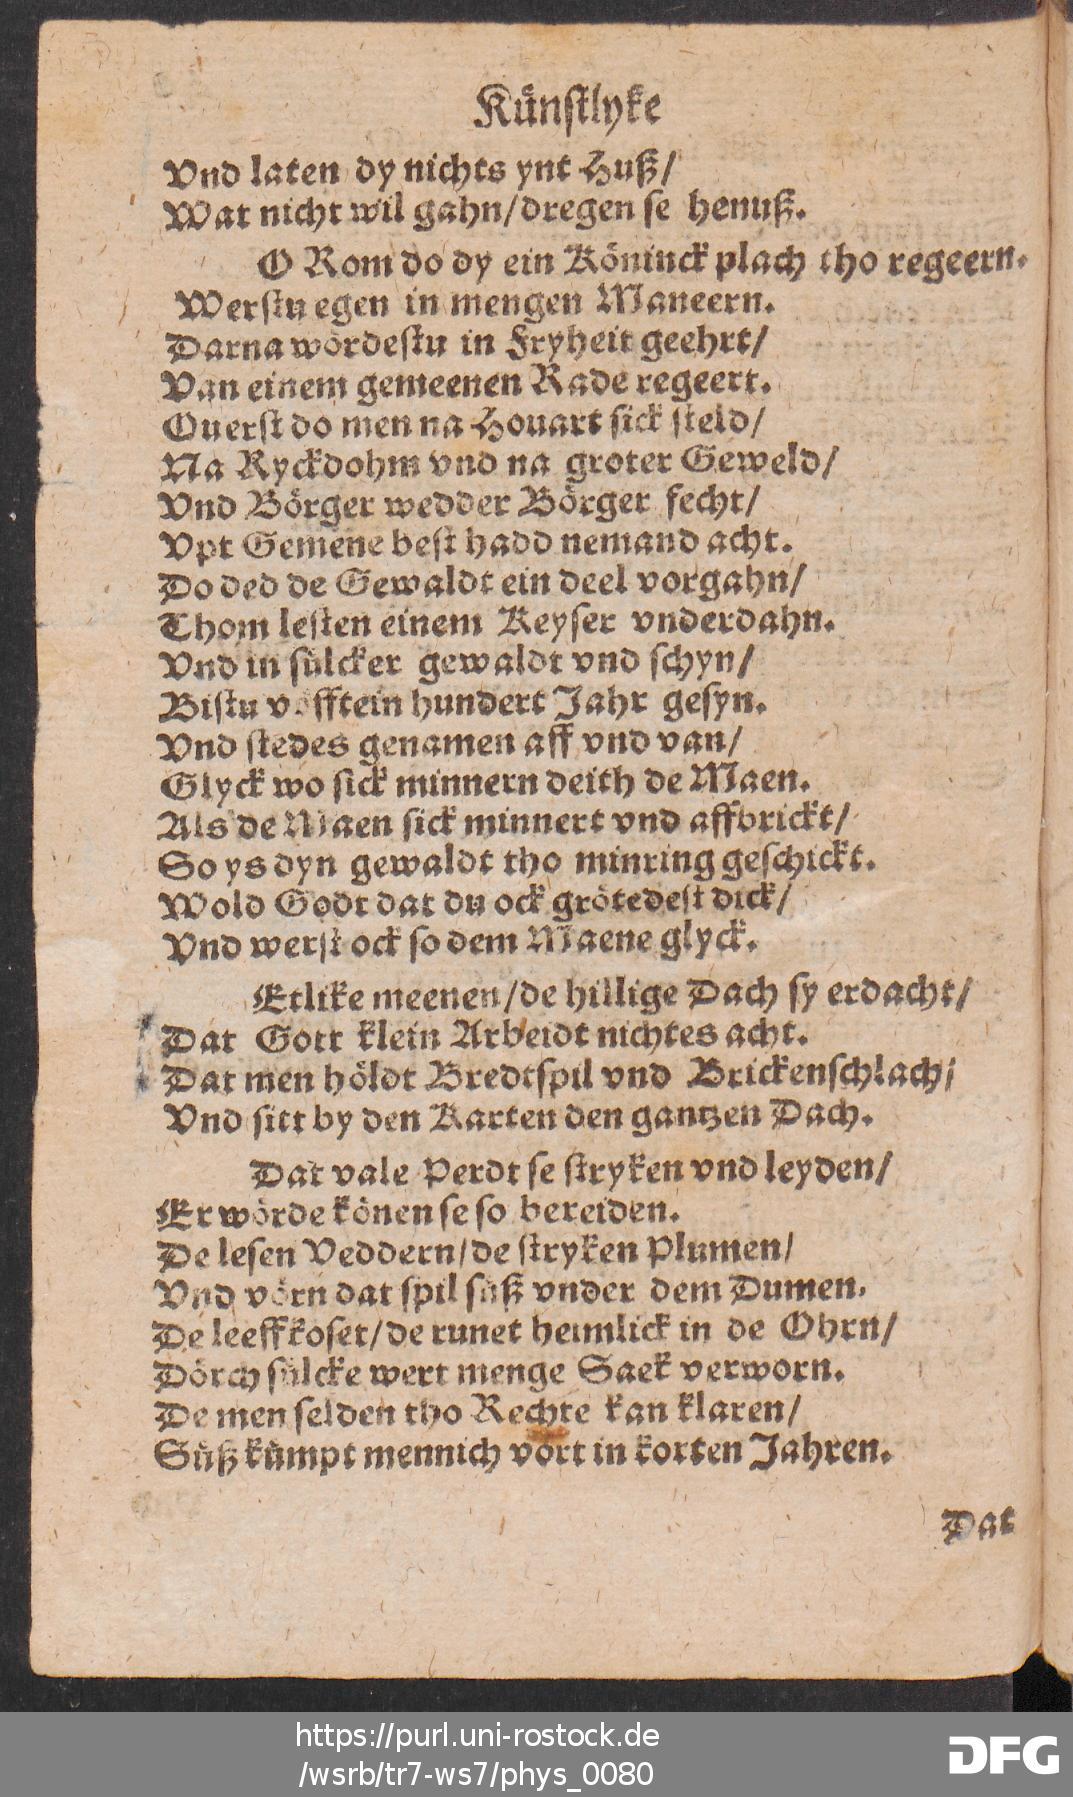 Künstlyke
Vnd laten dy nichts ynt Huß/
Wat nicht wil gahn/dregen se henuß.
O Rom do dy ein Köninck plach tho regeern.
Werstu egen in mengen Maneern.
Darna wördestu in Fryheit geehrt/
Van einem gemeenen Rade regeert.
Ouerst do men na Houart sick steld/
Na Ryckdohm vnd na groter Geweld/
Vnd Börger wedder Börger fecht/
Vpt Gemene best hadd nemand acht.
Do ded de Gewaldt ein deel vorgahn/
Thom lesten einem Keyser vnderdahn.
Vnd in sülcker gewaldt vnd schyn/
Bistu vöfftein hundert Jahr gesyn.
Vnd stedes genamen aff vnd van/
Glyck wo sick minnern deith de Maen.
Als de Maen sick minnert vnd affbrickt/
So ys dyn gewaldt tho minring geschickt.
Wold Godt dat du ock grötedest dick/
Vnd werst ock so dem Maene glyck.
Etlike meenen/de hillige Dach sy erdacht/
Dat Gott klein Arbeidt nichtes acht.
Dat men höldt Bredtspil vnd Brickenschlach/
Vnd sitt by den Karten den gantzen Dach.
Dat vale Perdt se stryken vnd leyden/
Er wörde könen se so bereiden.
De lesen Veddern/de stryken Plumen/
Vnd vörn dat spil süß vnder dem Dumen.
De leeffkoset/de runet heimlick in de Ohrn/
Dörch sülcke wert menge Saek verworn.
De men selden tho Rechte kan klaren/
Süß kümpt mennich vört in korten Jahren.
Dat
https://purl.uni-rostock.de
/wsrb/tr7-ws7/phys_0080
DFG